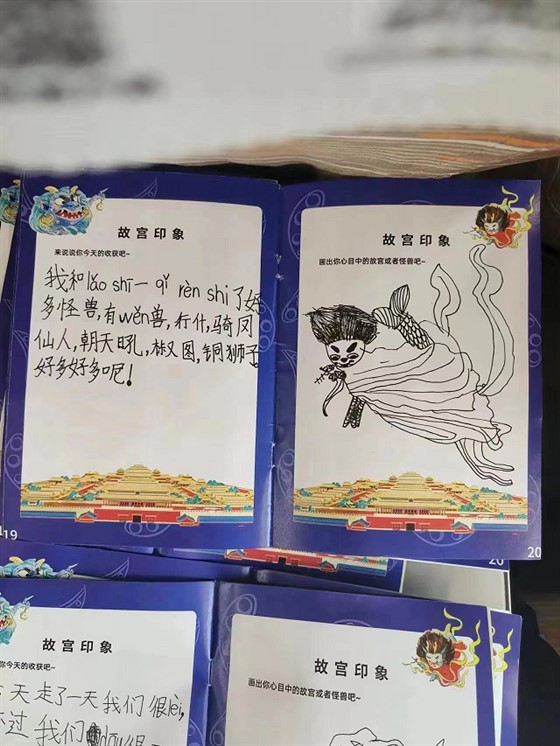 故宫印象
来说说你今天的收获吧~
我和lǎo shī一 qǐ rèn shi了好
多怪兽,有wěn兽,行什,骑凤
仙人,朝天吼,椒图,铜狮子
好多好多呢!
19
故宫印象
画出你心目中的故宫或者怪兽吧~
20
20
故宫印象
你今天的收获吧~
天走了一天我们很lèi,
过我们dōu很
故宫印象
画出你心目中的故宫或者怪兽吧~